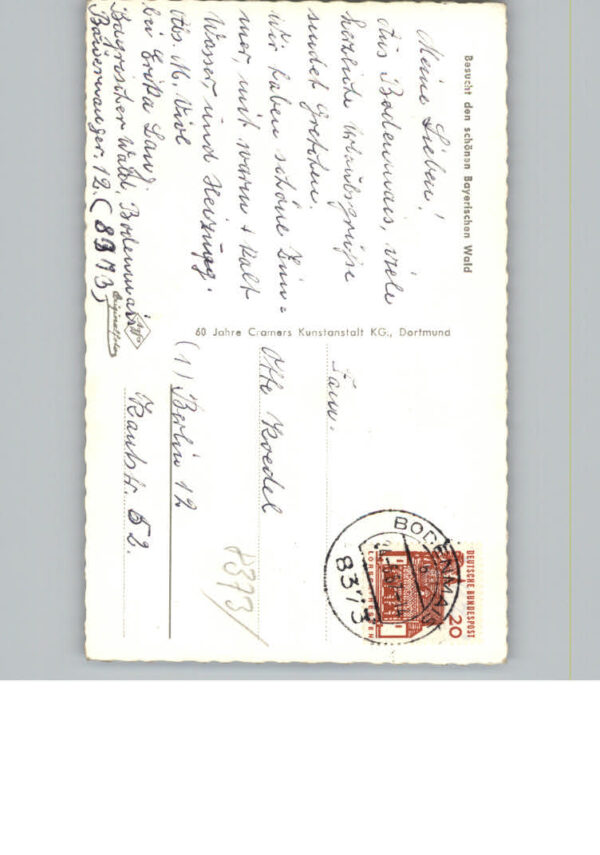 Besucht den schönen Bayerischen Wald
Meine Lieben!
Aus Bodenmais, viele
herzliche Urlaubsgrüße
sendet Gretchen.
Wir haben schöne Zim=
mer, mit warm + kalt
Wasser, und Heizung.
Abs. M.
bei Erika Lang.
Bayrischer Wald, Bodenmais
12. (8373)
60 Jahre Cramers Kunstanstalt KG., Dortmund
Fam.
Otto Koedel
(1) Berlin 12
Kantstr. 52.
8373/
DEUTSCHE BUNDESPOST
20
BODENMAIS
8373